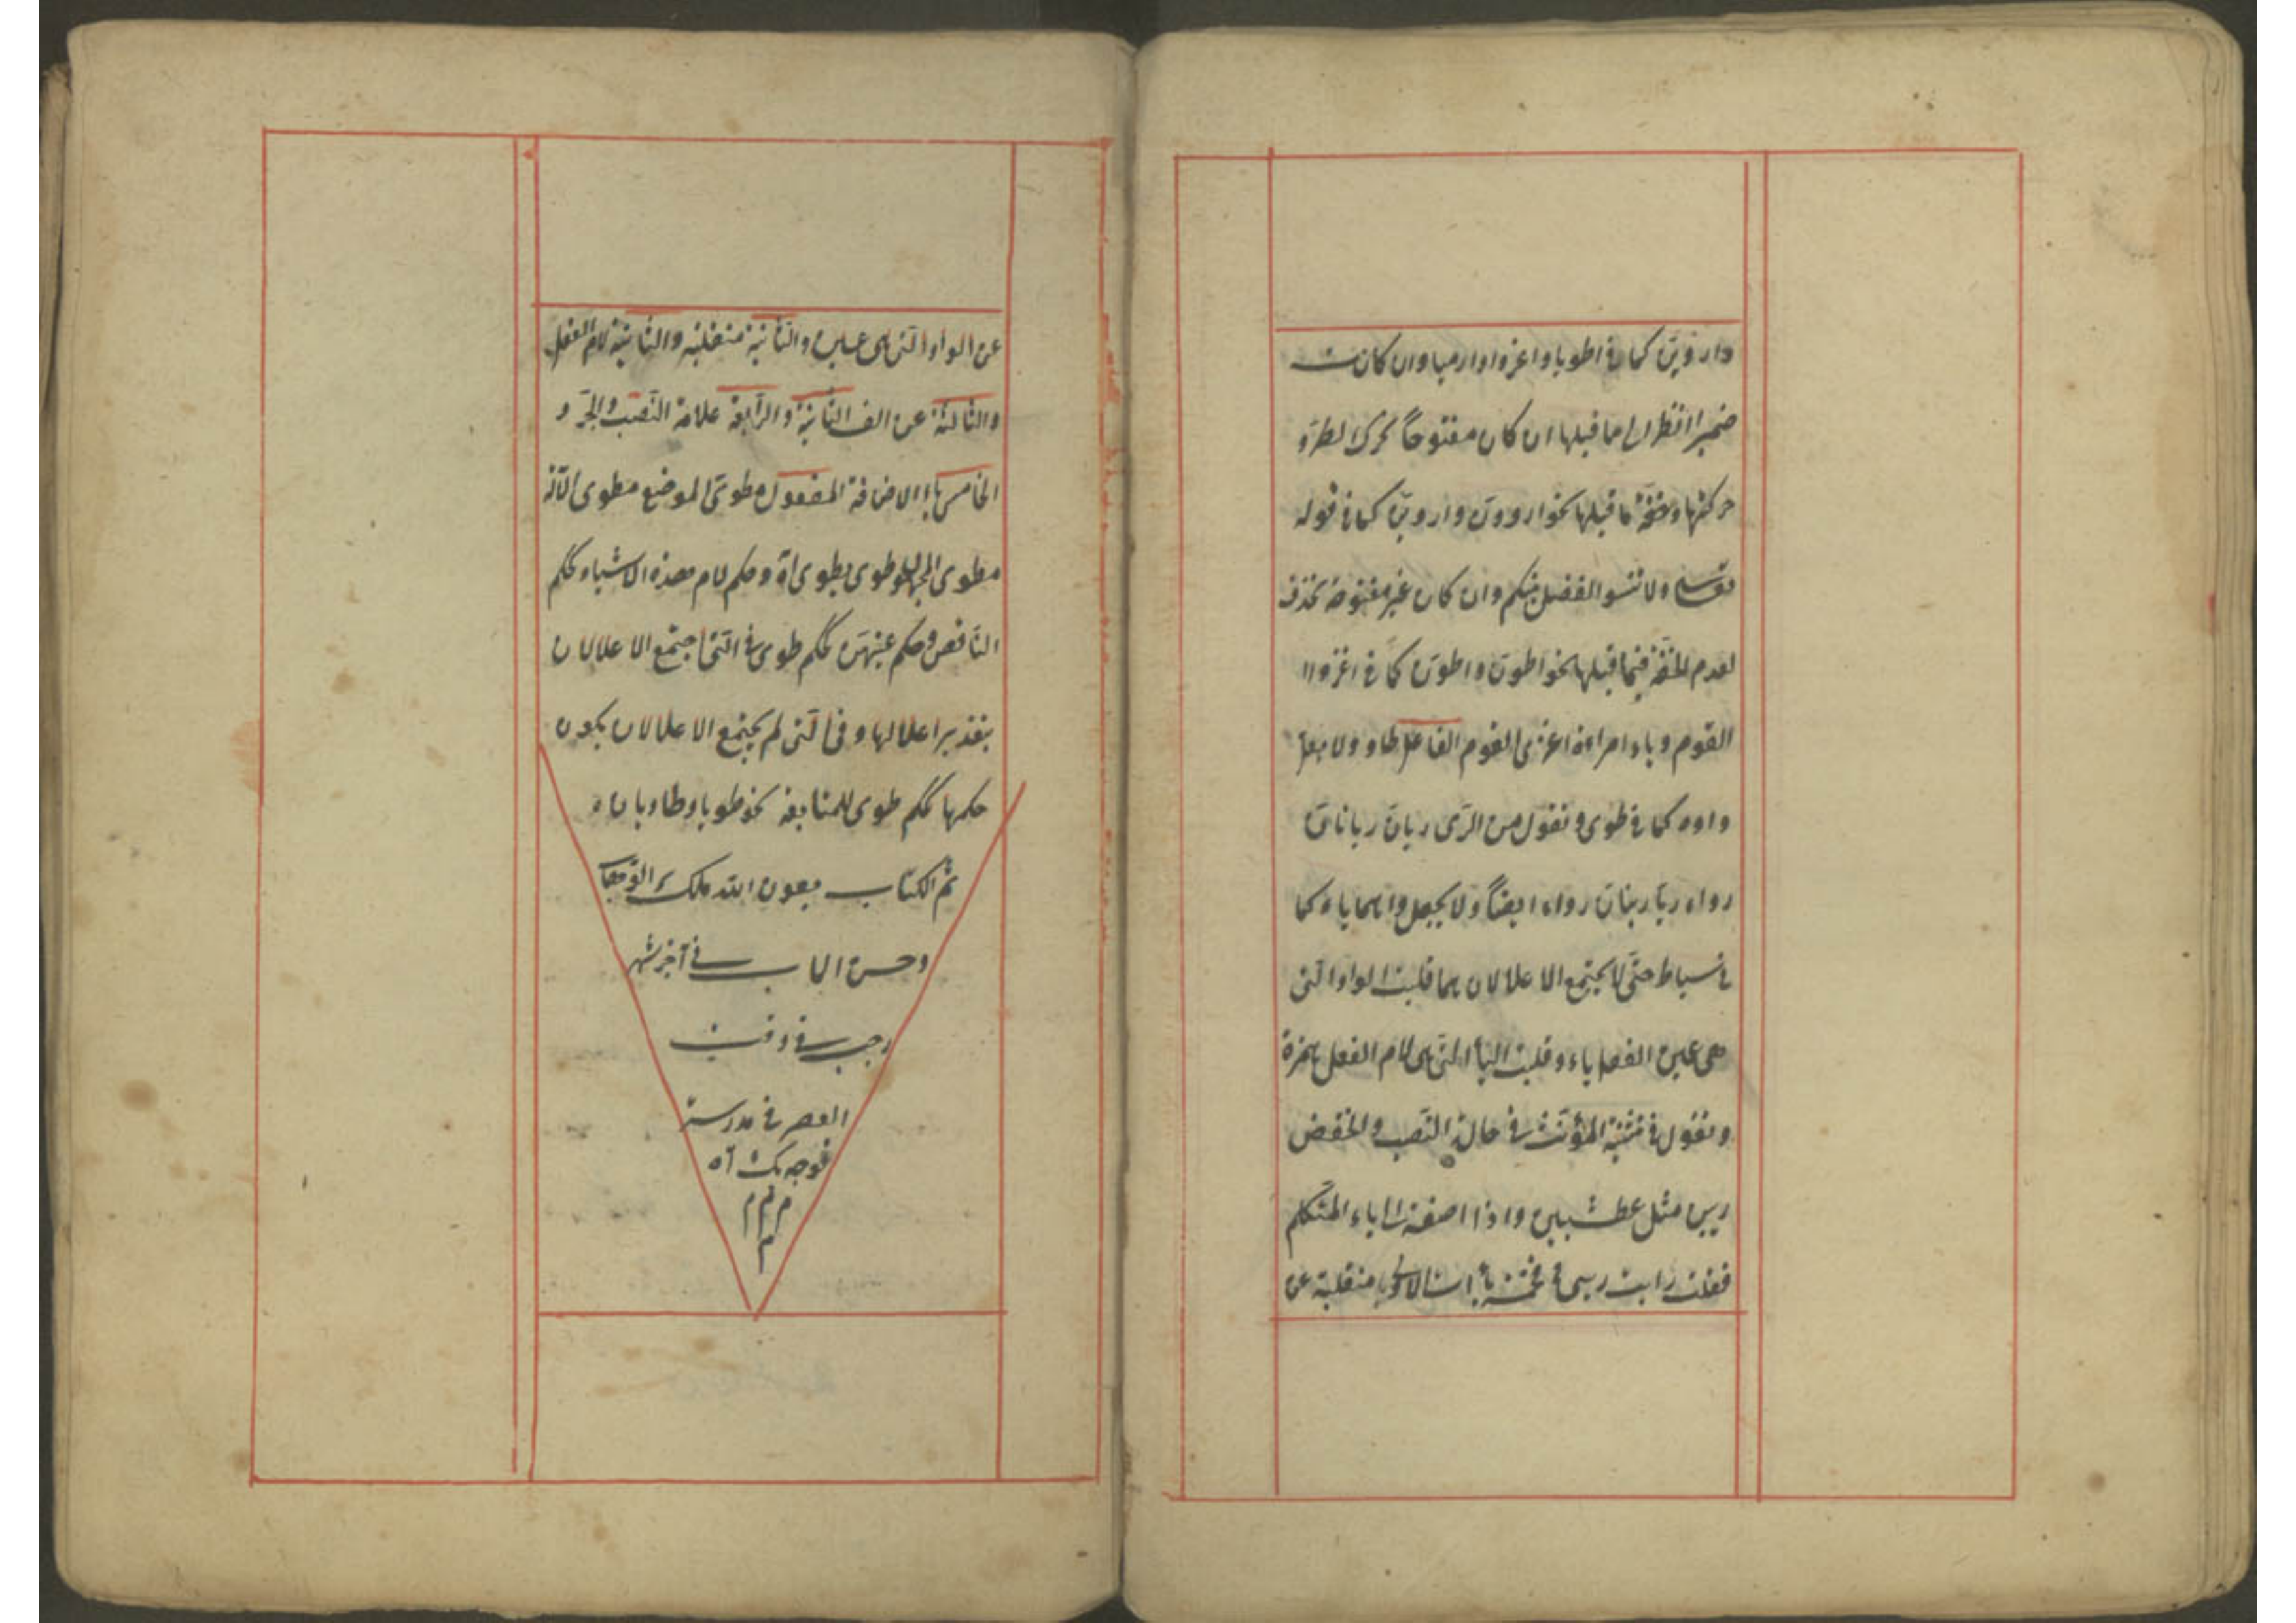 واروين كما في اطويا واغزوا وارميا وان كانت
ضميرا انظر الى ما قبلها ان كان مفتوحا تحرك لطرو
حركتها وخفة ما قبلها نحو اروون واروين كما في قوله
تعالى ولا تنسوا الفضل بينكم وان كان غير مفتوحة تحذف
لعدم الخفة فيما قبلها نحو اطون واطون كما في اغزوا
القوم ويا امراءة اغزى القوم الفاعل طاو ولا يعل
واوه كما في طوى وتقول من الرى ريان ريانان
رواء ريا رييان رواء ايضا ولا يجعل واهما ياء كما
في سياط حتى لا يجتمع الاعلالان هما قلبت الواو التى
هى عين الفعل ياء وقلبت الياء التى هى لام الفعل همزة
وتقول في تثنية المؤنث في حالة النصب والخفض
ريين مثل عطشيين واذا اضفته الى ياء المتكلم
فقلت رايت ريى في خمسة ياات الاولى منقلبة عن
عن الواو التى هى عين والثانية منقلبة والثانية لام الفعل
والثالثة عن الف الثانية والرابعة علامة النصب والجر و
الخامس ياء الاضافة المفعول مطوى الموضع مطوى الآلة
مطوى المجهول طوى يطوى اه وحكم لام هذه الاشياء كحكم
الناقص وحكم عينهن كحكم طوى في التى اجتمع الاعلالان
بتقدير اعلالها وفى التى لم يجتمع الاعلالان يكون
حكمها كحكم طوى للمتابعة نحو طويا وطاويان ه
تم الكتاب بعون الله ملك الوهاب
وحسن الماب في آخر شهر
رجب في وقت
العصر في مدرسة
م م م
م